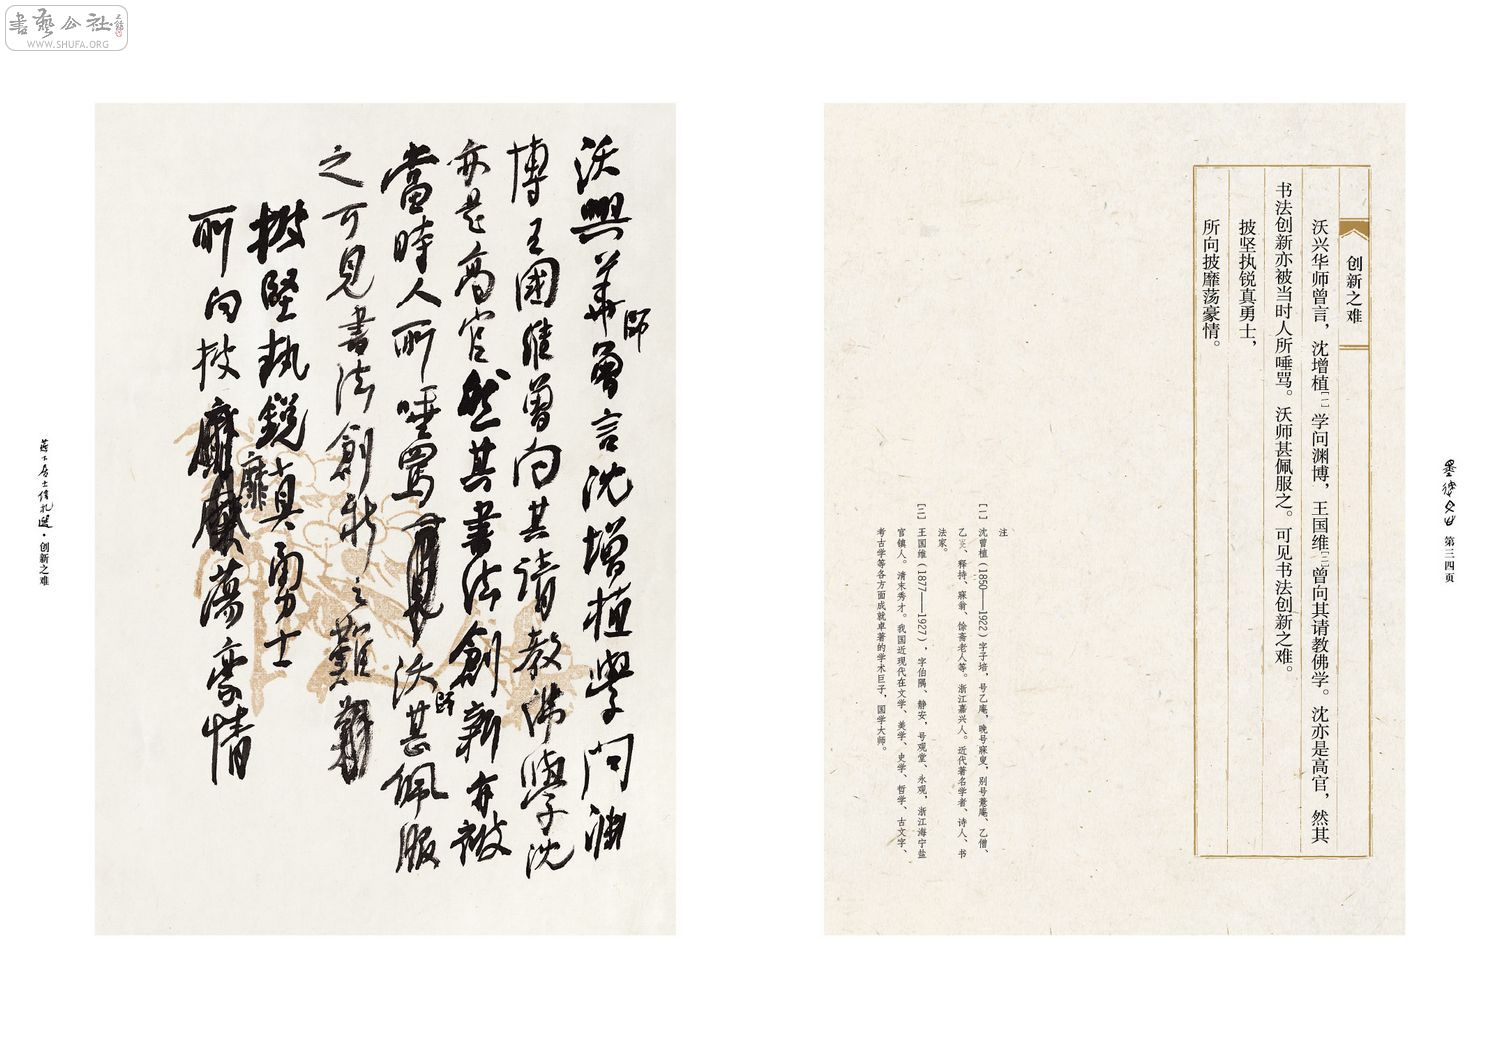 書藝公社
WWW.SHUFA.ORG
創新之难
沃兴华师曾言，沈增植[一]学问渊博，王国维[二]曾向其请教佛学。沈亦是高官，然其
书法创新亦被当时人所唾骂。沃师甚佩服之。可见书法创新之难。
披坚执锐真勇士，
所向披靡荡豪情。
注
[一] 沈曾植（1850——1922）字子培，号乙庵，晚号寐叟，别号薏庵、乙僧、
乙叟、释持、寐翁、馀斋老人等。浙江嘉兴人。近代著名学者、诗人、书
法家。
[二] 王国维（1877——1927），字伯隅、静安，号观堂、永观，浙江海宁盐
官镇人。清末秀才。我国近现代在文学、美学、史学、哲学、古文字、
考古学等各方面成就卓著的学术巨子，国学大师。
第三四页
沃興華師曾言沈增植學問淵
博王國維曾向其請教佛學沈
亦是高官然其書法創新亦被
當時人所唾罵沃師甚佩服
之可見書法創新之難
披堅執銳真勇士
所向披靡蕩豪情
・创新之难